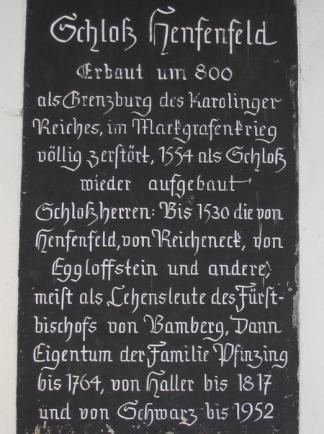 Schloß Henfenfeld
Erbaut um 800
als Grenzburg des Karolinger
Reiches, im Markgrafenkrieg
völlig zerstört, 1554 als Schloß
wieder aufgebaut
Schloßherren: Bis 1530 die von
Henfenfeld, von Reicheneck, von
Eggloffstein und andere,
meist als Lehensleute des Fürst-
bischofs von Bamberg, Dann
Eigentum der Familie Pfinzing
bis 1764, von Haller bis 1817
und von Schwarz bis 1952